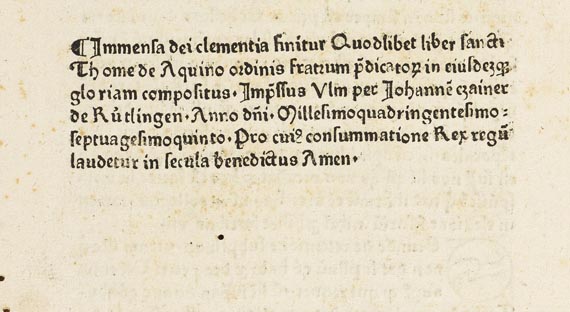 ¶Immensa dei clementia finitur Quodlibet liber sancti
Thome de Aquino ordinis fratrum p̄dicatoꝝ in eiusdēqꝫ
gloriam compositus · Imp̄ssus Ulm per Johannē czainer
de Růtlingen · Anno dn̄i · Millesimoquadringentesimo⸗
septuagesimoquinto · Pro cuiꝰ consummatione Rex regū
laudetur in secula benedictus Amen ·